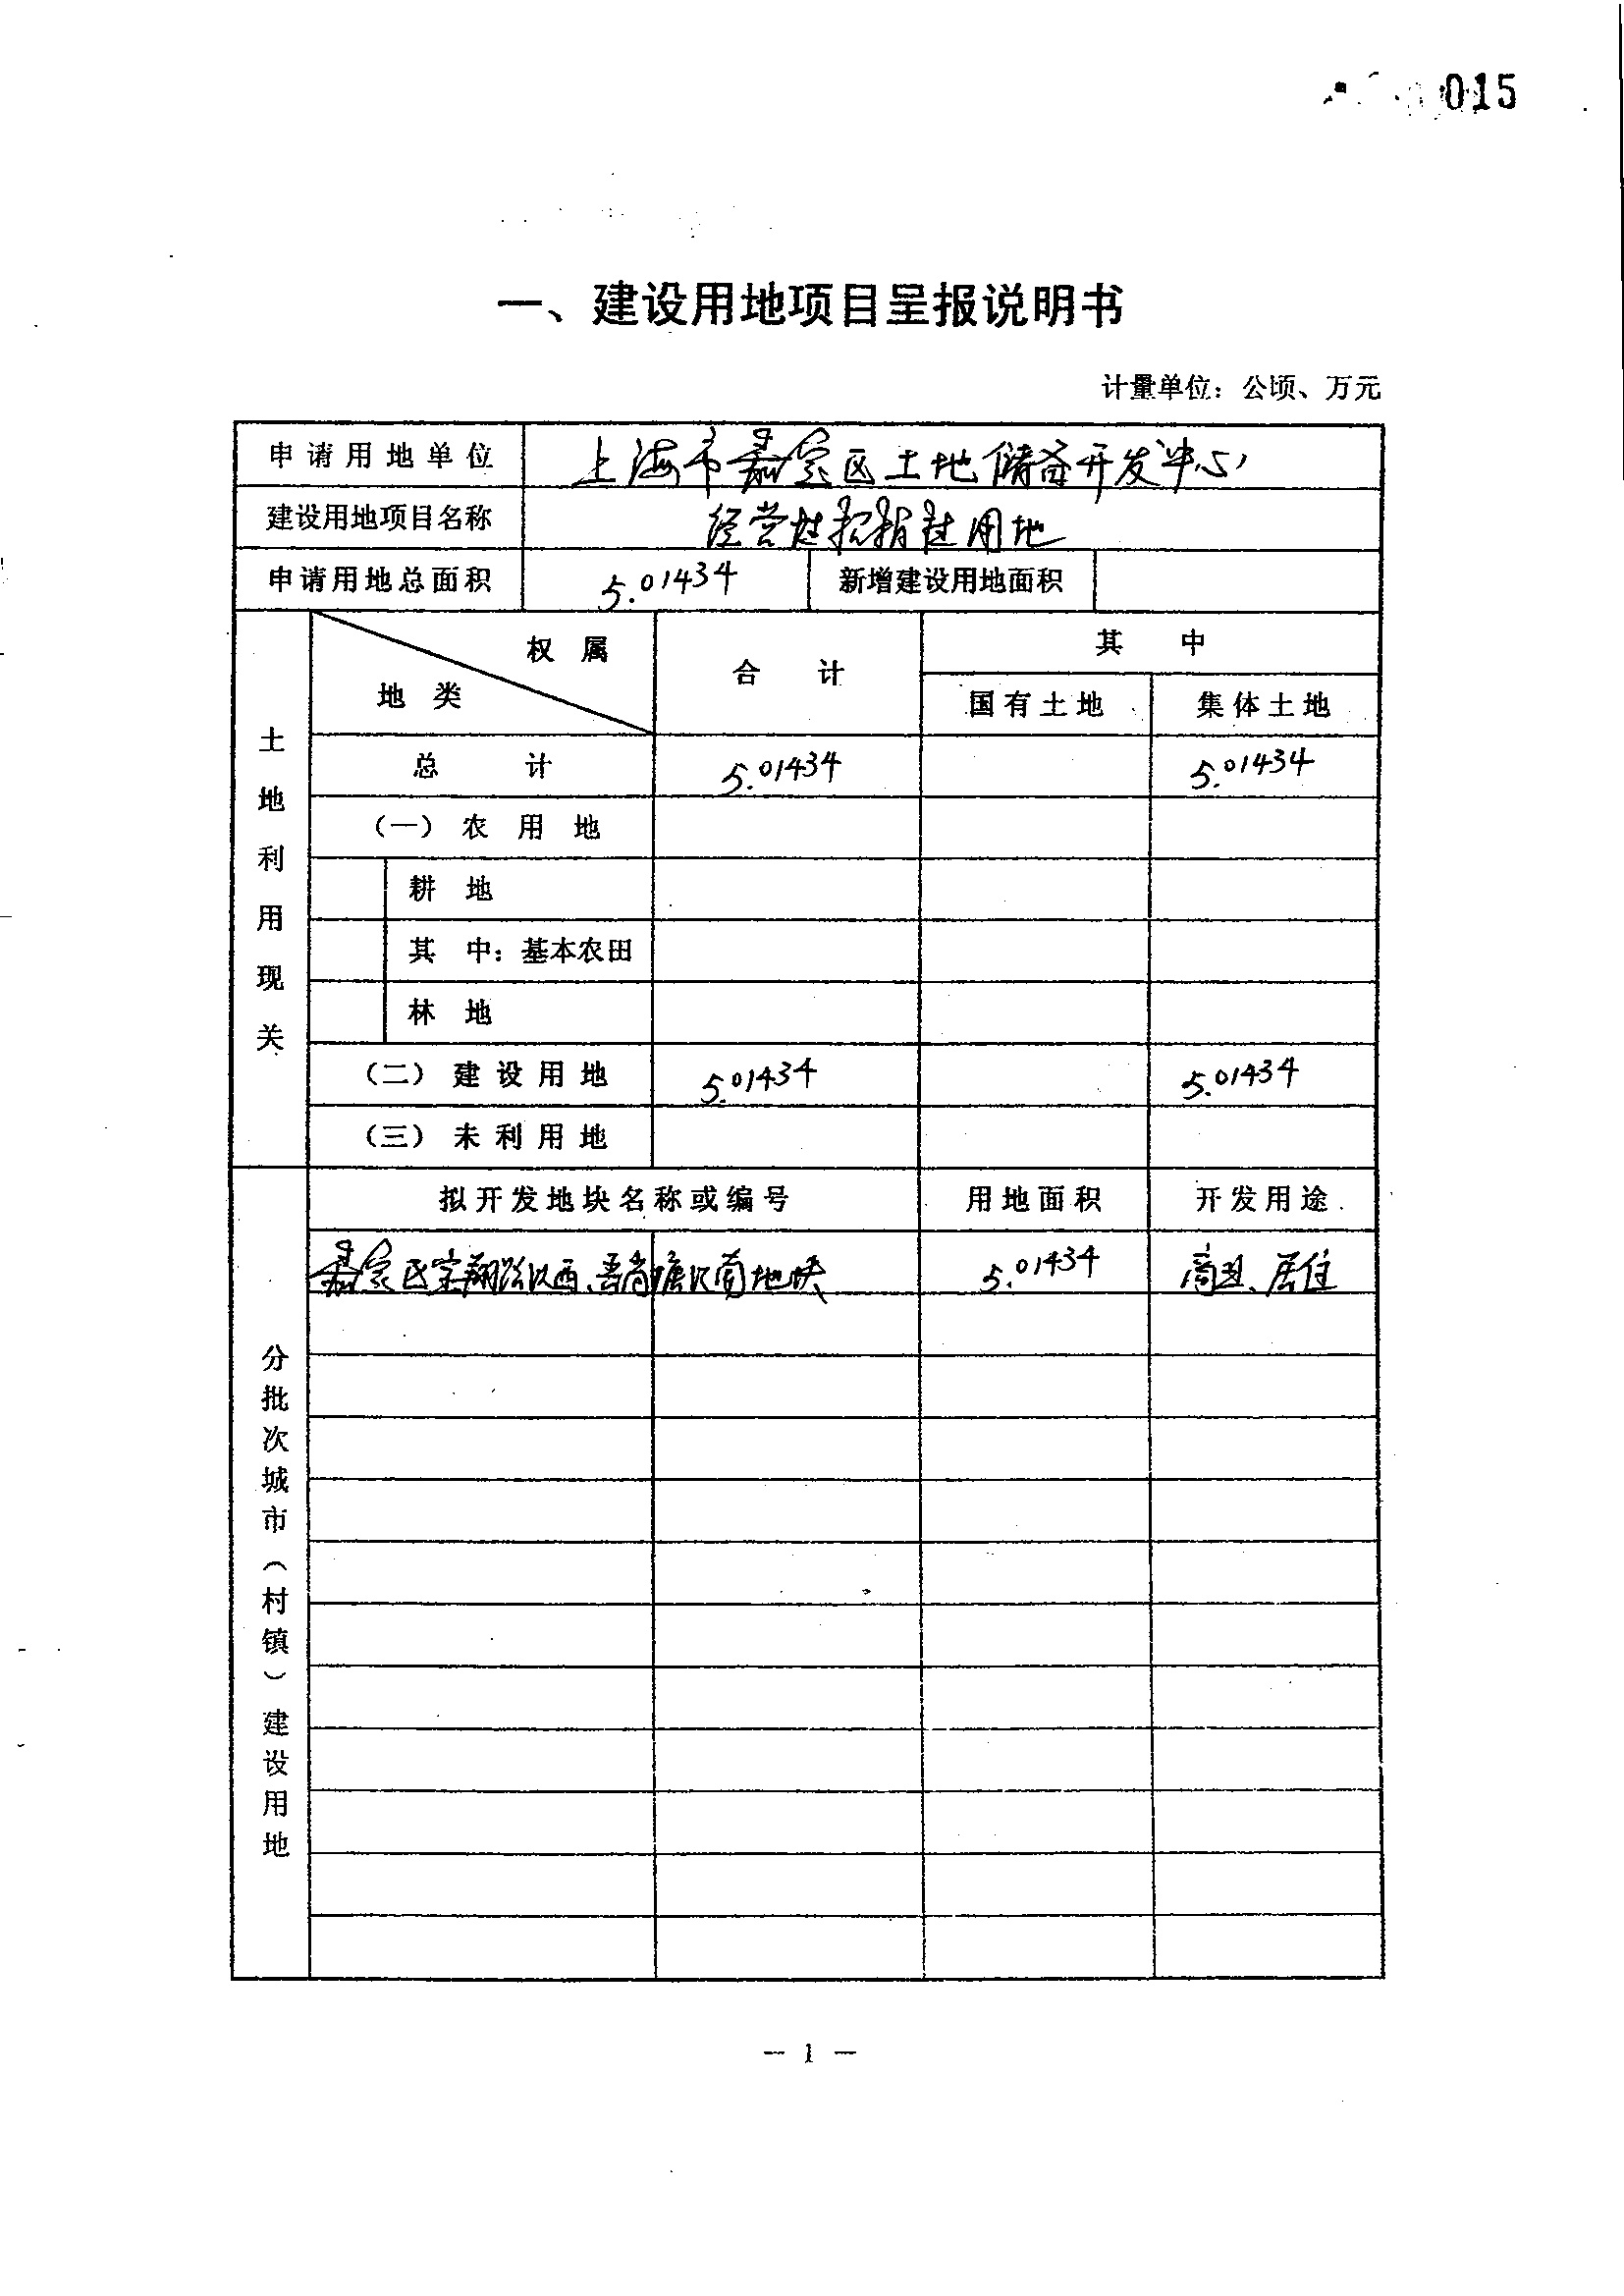 015
一、建设用地项目呈报说明书
计量单位：公顷、万元
申请用地单位 上海市嘉定区土地储备开发中心
建设用地项目名称 经营性招拍挂用地
申请用地总面积 5.01434 新增建设用地面积
土地利用现关
权属
地类
合计
其中
国有土地 集体土地
总计 5.01434 5.01434
（一）农用地
耕地
其中：基本农田
林地
（二）建设用地 5.01434 5.01434
（三）未利用地
分批次城市（村镇）建设用地
拟开发地块名称或编号 用地面积 开发用途
嘉定区宝翔路以西、吾尚塘以南地块 5.01434 商业、居住
— 1 —